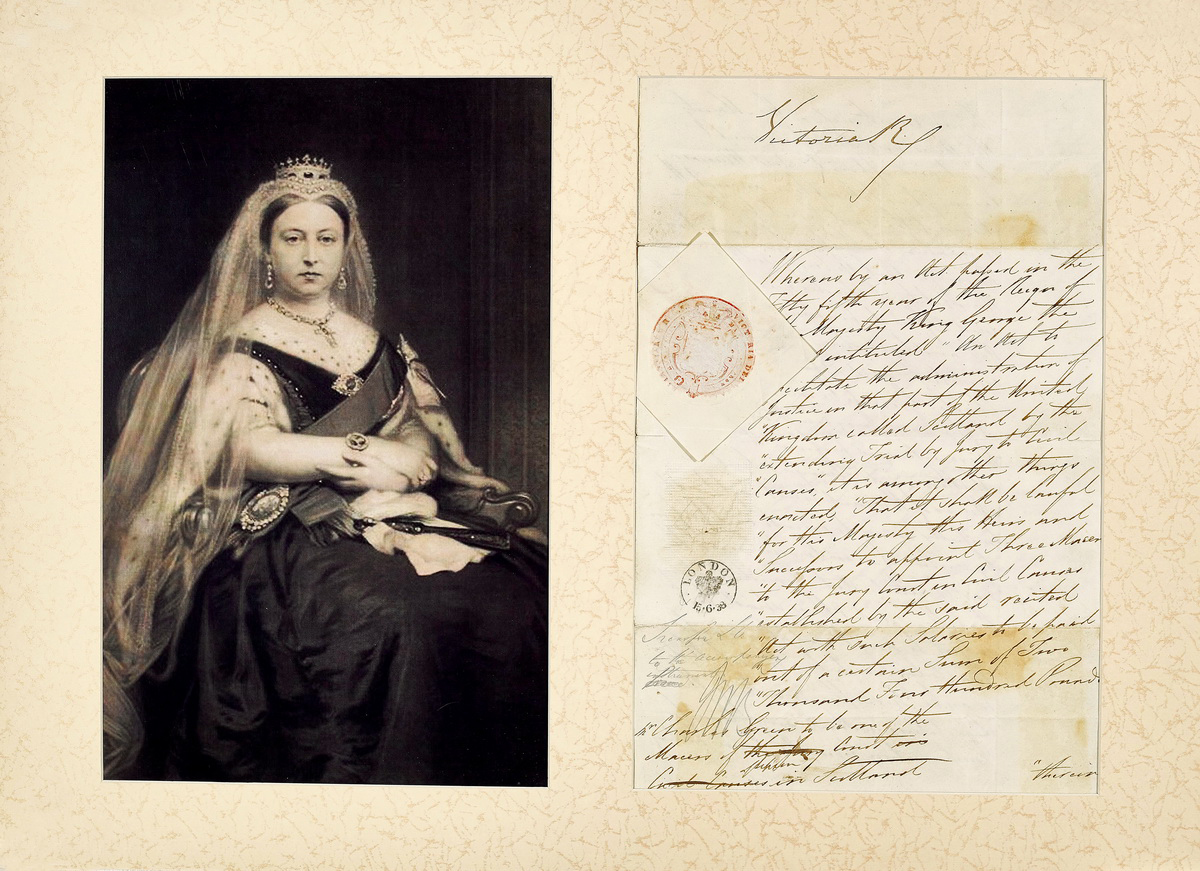 Victoria R
Whereas by an Act passed in the
Fifty fifth year of the Reign of
Majesty King George the
intituled "An Act to
facilitate the administration of
Justice in that part of the United
"Kingdom called Scotland by the
"extending Trial by Jury to Civil
"Causes", it is among other things
enacted, "That it shall be lawful
"for His Majesty His Heirs and
"Successors to appoint Three Macers
"to the Jury Court in Civil Causes
"established by the said recited
"Act with such Salaries to be paid
"out of a certain Sum of Two
"Thousand Four Hundred Pounds
LONDON
Charles Green to be one of the
Macers of the Jury Court in
Civil Causes in Scotland
"therein